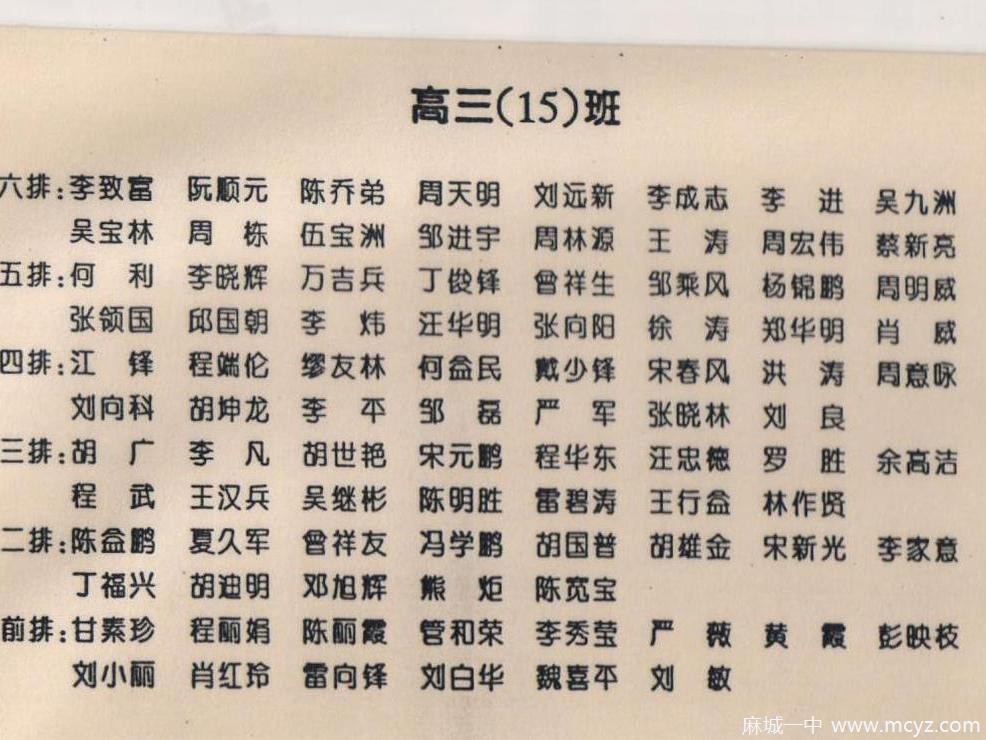 高三(15)班
六排:李致富 阮顺元 陈乔弟 周天明 刘远新 李成志 李进 吴九洲
吴宝林 周栋 伍宝洲 邹进宇 周林源 王涛 周宏伟 蔡新亮
五排:何利 李晓辉 万吉兵 丁俊锋 曾祥生 邹乘风 杨锦鹏 周明威
张领国 邱国朝 李炜 汪华明 张向阳 徐涛 郑华明 肖威
四排:江锋 程端伦 缪友林 何益民 戴少锋 宋春风 洪涛 周意咏
刘向科 胡坤龙 李平 邹磊 严军 张晓林 刘良
三排:胡广 李凡 胡世艳 宋元鹏 程华东 汪忠德 罗胜 余高洁
程武 王汉兵 吴继彬 陈明胜 雷碧涛 王行益 林作贤
二排:陈益鹏 夏久军 曾祥友 冯学鹏 胡国普 胡雄金 宋新光 李家意
丁福兴 胡迪明 邓旭辉 熊炬 陈宽宝
前排:甘素珍 程丽娟 陈丽霞 管和荣 李秀莹 严薇 黄霞 彭映枝
刘小丽 肖红玲 雷向锋 刘白华 魏喜平 刘敏
麻城一中 www.mcyz.com